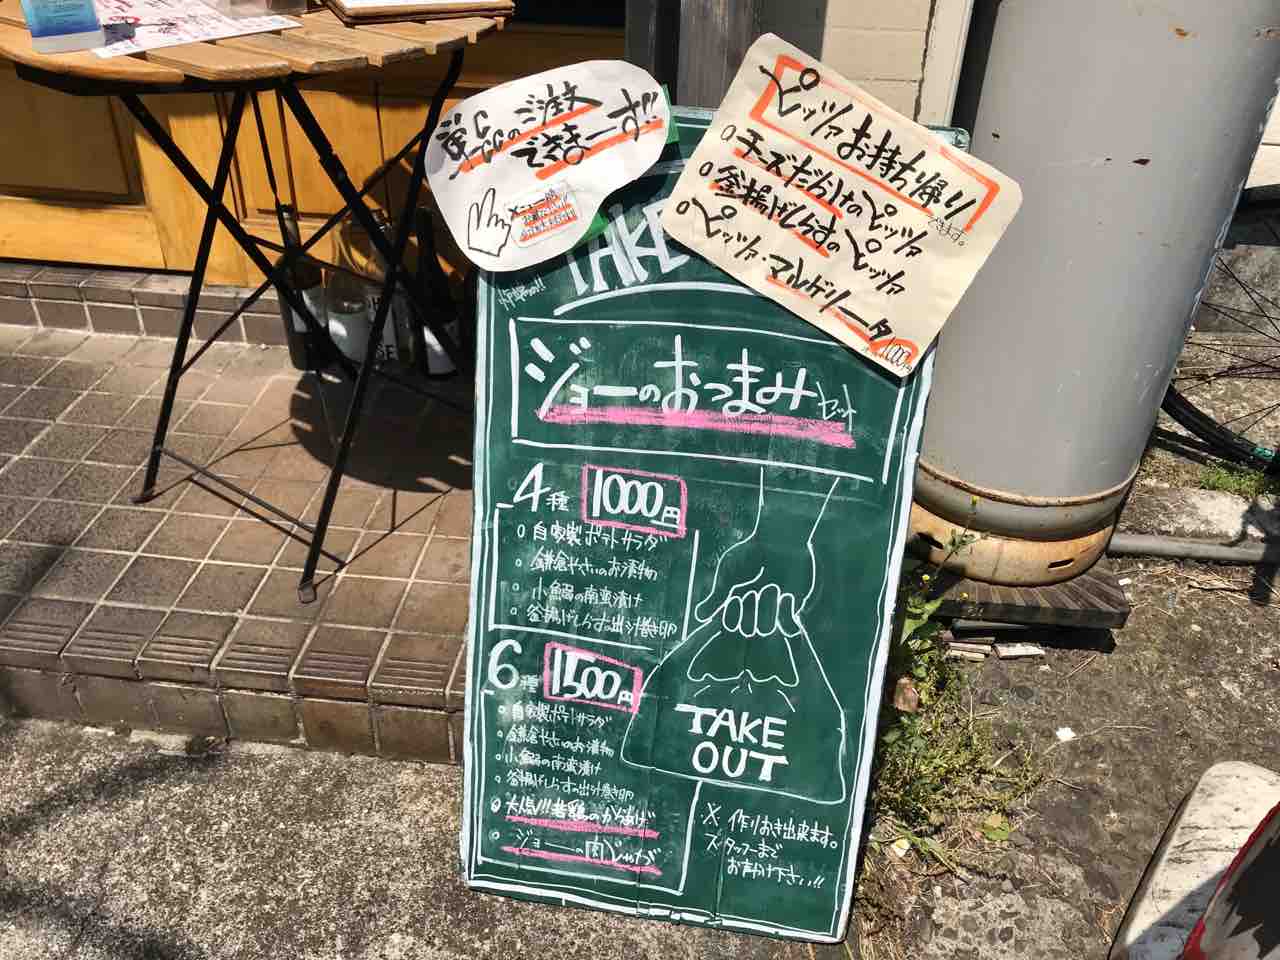 単品のご注文
できまーす!!
メニュー
ピッツァお持ち帰り
できます。
チーズだらけのピッツァ
釜揚げしらすのピッツァ
ピッツァ・マルゲリータ
1000円
TAKE
ジョーのおつまみセット
4種 1000円
自家製ポテトサラダ
鎌倉やさいのお漬物
小鯵の南蛮漬け
釜揚げしらすの出汁巻き卵
6種 1500円
自家製ポテトサラダ
鎌倉やさいのお漬物
小鯵の南蛮漬け
釜揚げしらすの出汁巻き卵
人気!!若鶏のから揚げ
ジョーの肉じゃが
TAKE
OUT
※ 作りおき出来ます。
スタッフまで
お声かけ下さい!!